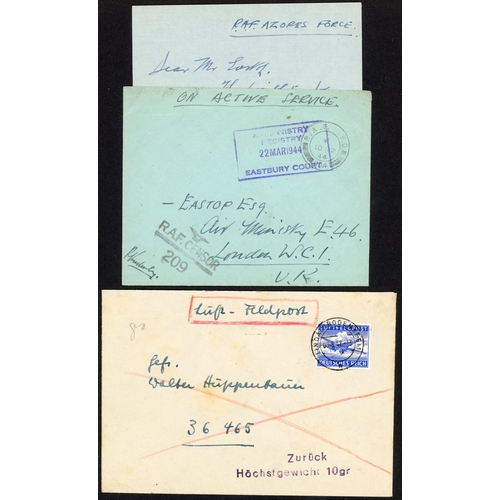 R.A.F. AZORES FORCE.
Dear Mr
ON ACTIVE SERVICE.
REGISTRY
22 MAR 1944
EASTBURY COURT
- EASTOP ESQ.
Air Ministry E.46.
London W.C.1.
U.K.
R.A.F. CENSOR
209
Luft - Feldpost
DEUTSCHES REICH
Gefr.
Walter Huppenbauer
36 465
Zurück
Höchstgewicht 10gr